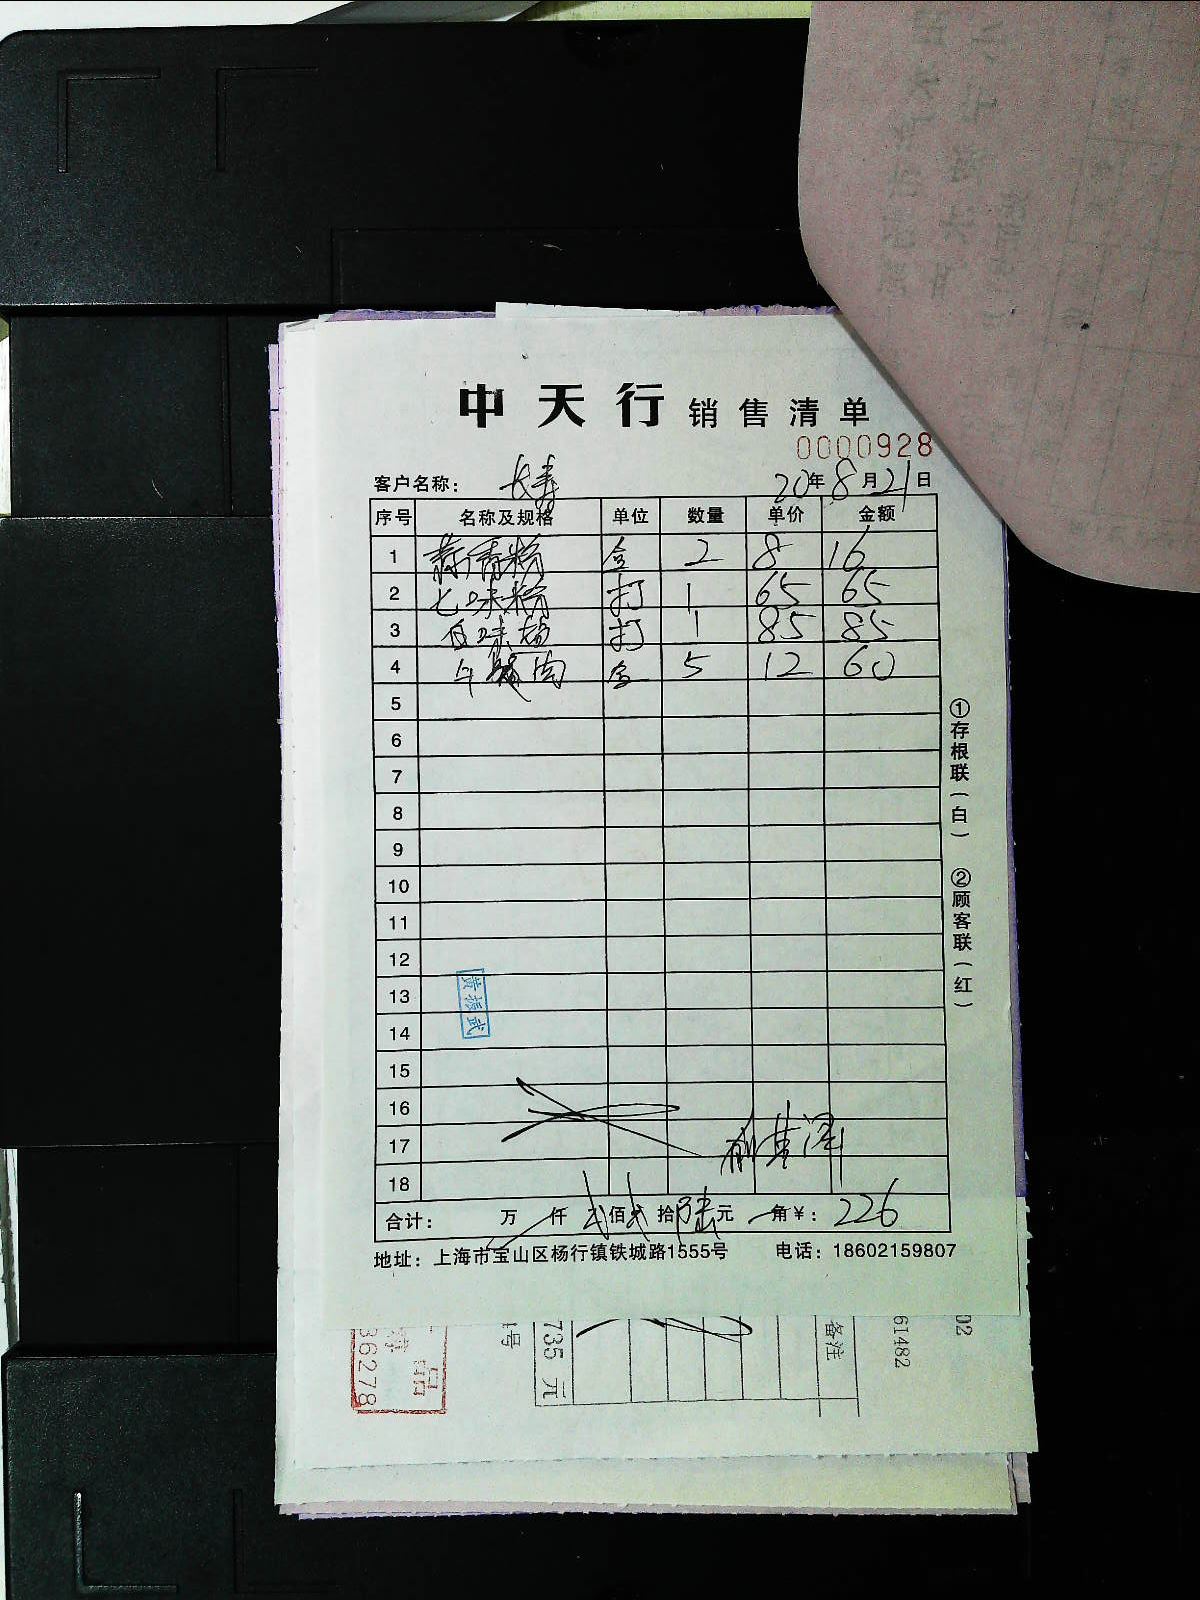 中天行 销售清单
0000928
客户名称： 长寿 20年8月21日
序号 名称及规格 单位 数量 单价 金额
1 盒 2 8 16
2 七味粉 打 1 65 65
3 打 1 85 85
4 午餐肉 盒 5 12 60
5
6
7
8
9
10
11
12
13
14
15
16
17
18
合计： 万 仟 弍佰弍拾陆元 角￥： 226
地址：上海市宝山区杨行镇铁城路1555号 电话：18602159807
①存根联（白） ②顾客联（红）
735 元
备注
61482
02
36278